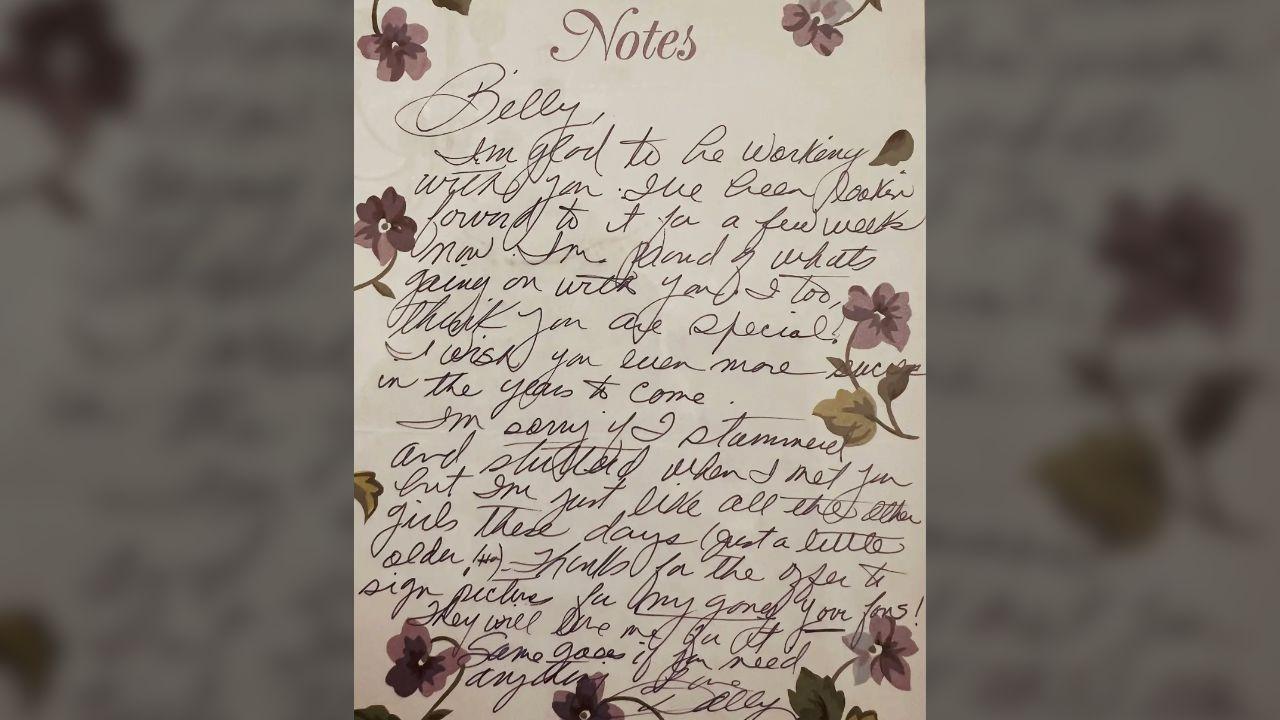 Notes
Billy,
I'm glad to be working
with you. I've been lookin
forward to it for a few weeks
now. I'm proud of whats
going on with you. I too,
think you are special!
I wish you even more success
in the years to come.
I'm sorry if I stammered
and stuttered when I met you
but I'm just like all the other
girls these days (just a little
older! Ha). Thanks for the offer to
sign pictures for my gone, your fans!
They will love me for it
Same goes if you need
anything
Love
Dolly